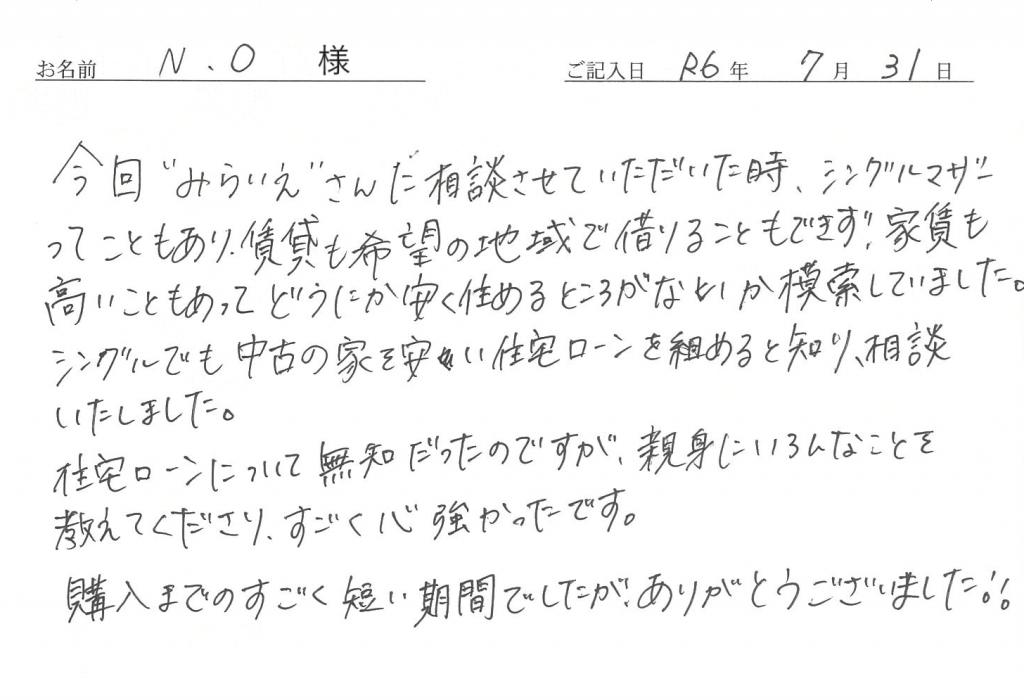 お名前 N.O 様 ご記入日 R6年 7月 31日
今回"みらいえ"さんに相談させていただいた時、シングルマザー
ってこともあり、賃貸も希望の地域で借りることもできず、家賃も
高いこともあってどうにか安く住めるところがないか模索していました。
シングルでも中古の家を安い住宅ローンを組めると知り、相談
いたしました。
住宅ローンについて無知だったのですが、親身にいろんなことを
教えてくださり、すごく心強かったです。
購入までのすごく短い期間でしたが、ありがとうございました!!